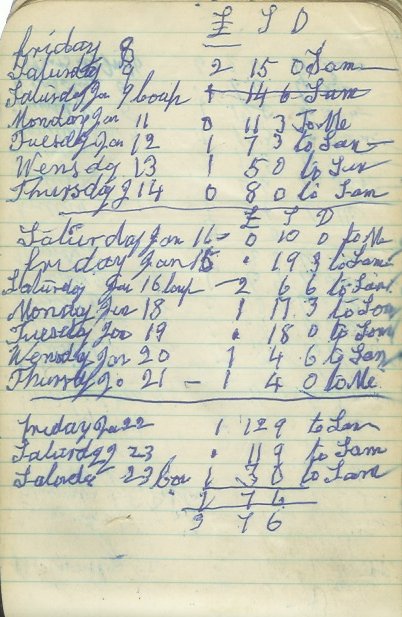 £ S D
friday 8
Saturday 9 2 15 0 Sam
Saturday Jan 9 1 14 6 Sam
Monday Jan 11 0 11 3 To Me
Tuesday Jan 12 1 7 3 to Sam
Wensday 13 1 5 0 to Sam
Thursday J 14 0 8 0 to Sam
£ S D
Saturday Jan 16 - 0 10 0 to Me
friday Jan 15 . 19 3 to Sam
Saturday Jan 16 - 2 6 6 to Sam
Monday Jan 18 1 17 3 to Sam
Tuesday Jan 19 . 18 0 to Sam
Wensday Jan 20 1 4 6 to Sam
Thursday Ja 21 - 1 4 0 to Me
friday Jan 22 1 12 9 to Sam
Saturday J 23 . 11 9 to Sam
Saturday 23 1 3 0 to Sam
7 6
3 7 6